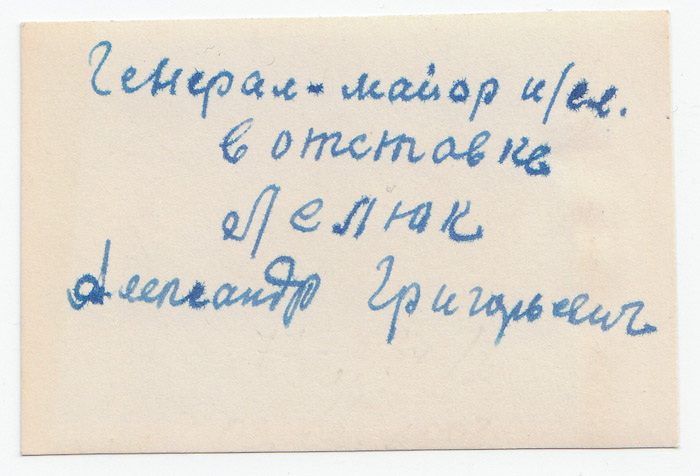 Генерал-майор и/сл.
в отставке
Лелюк
Александр Григорьевич